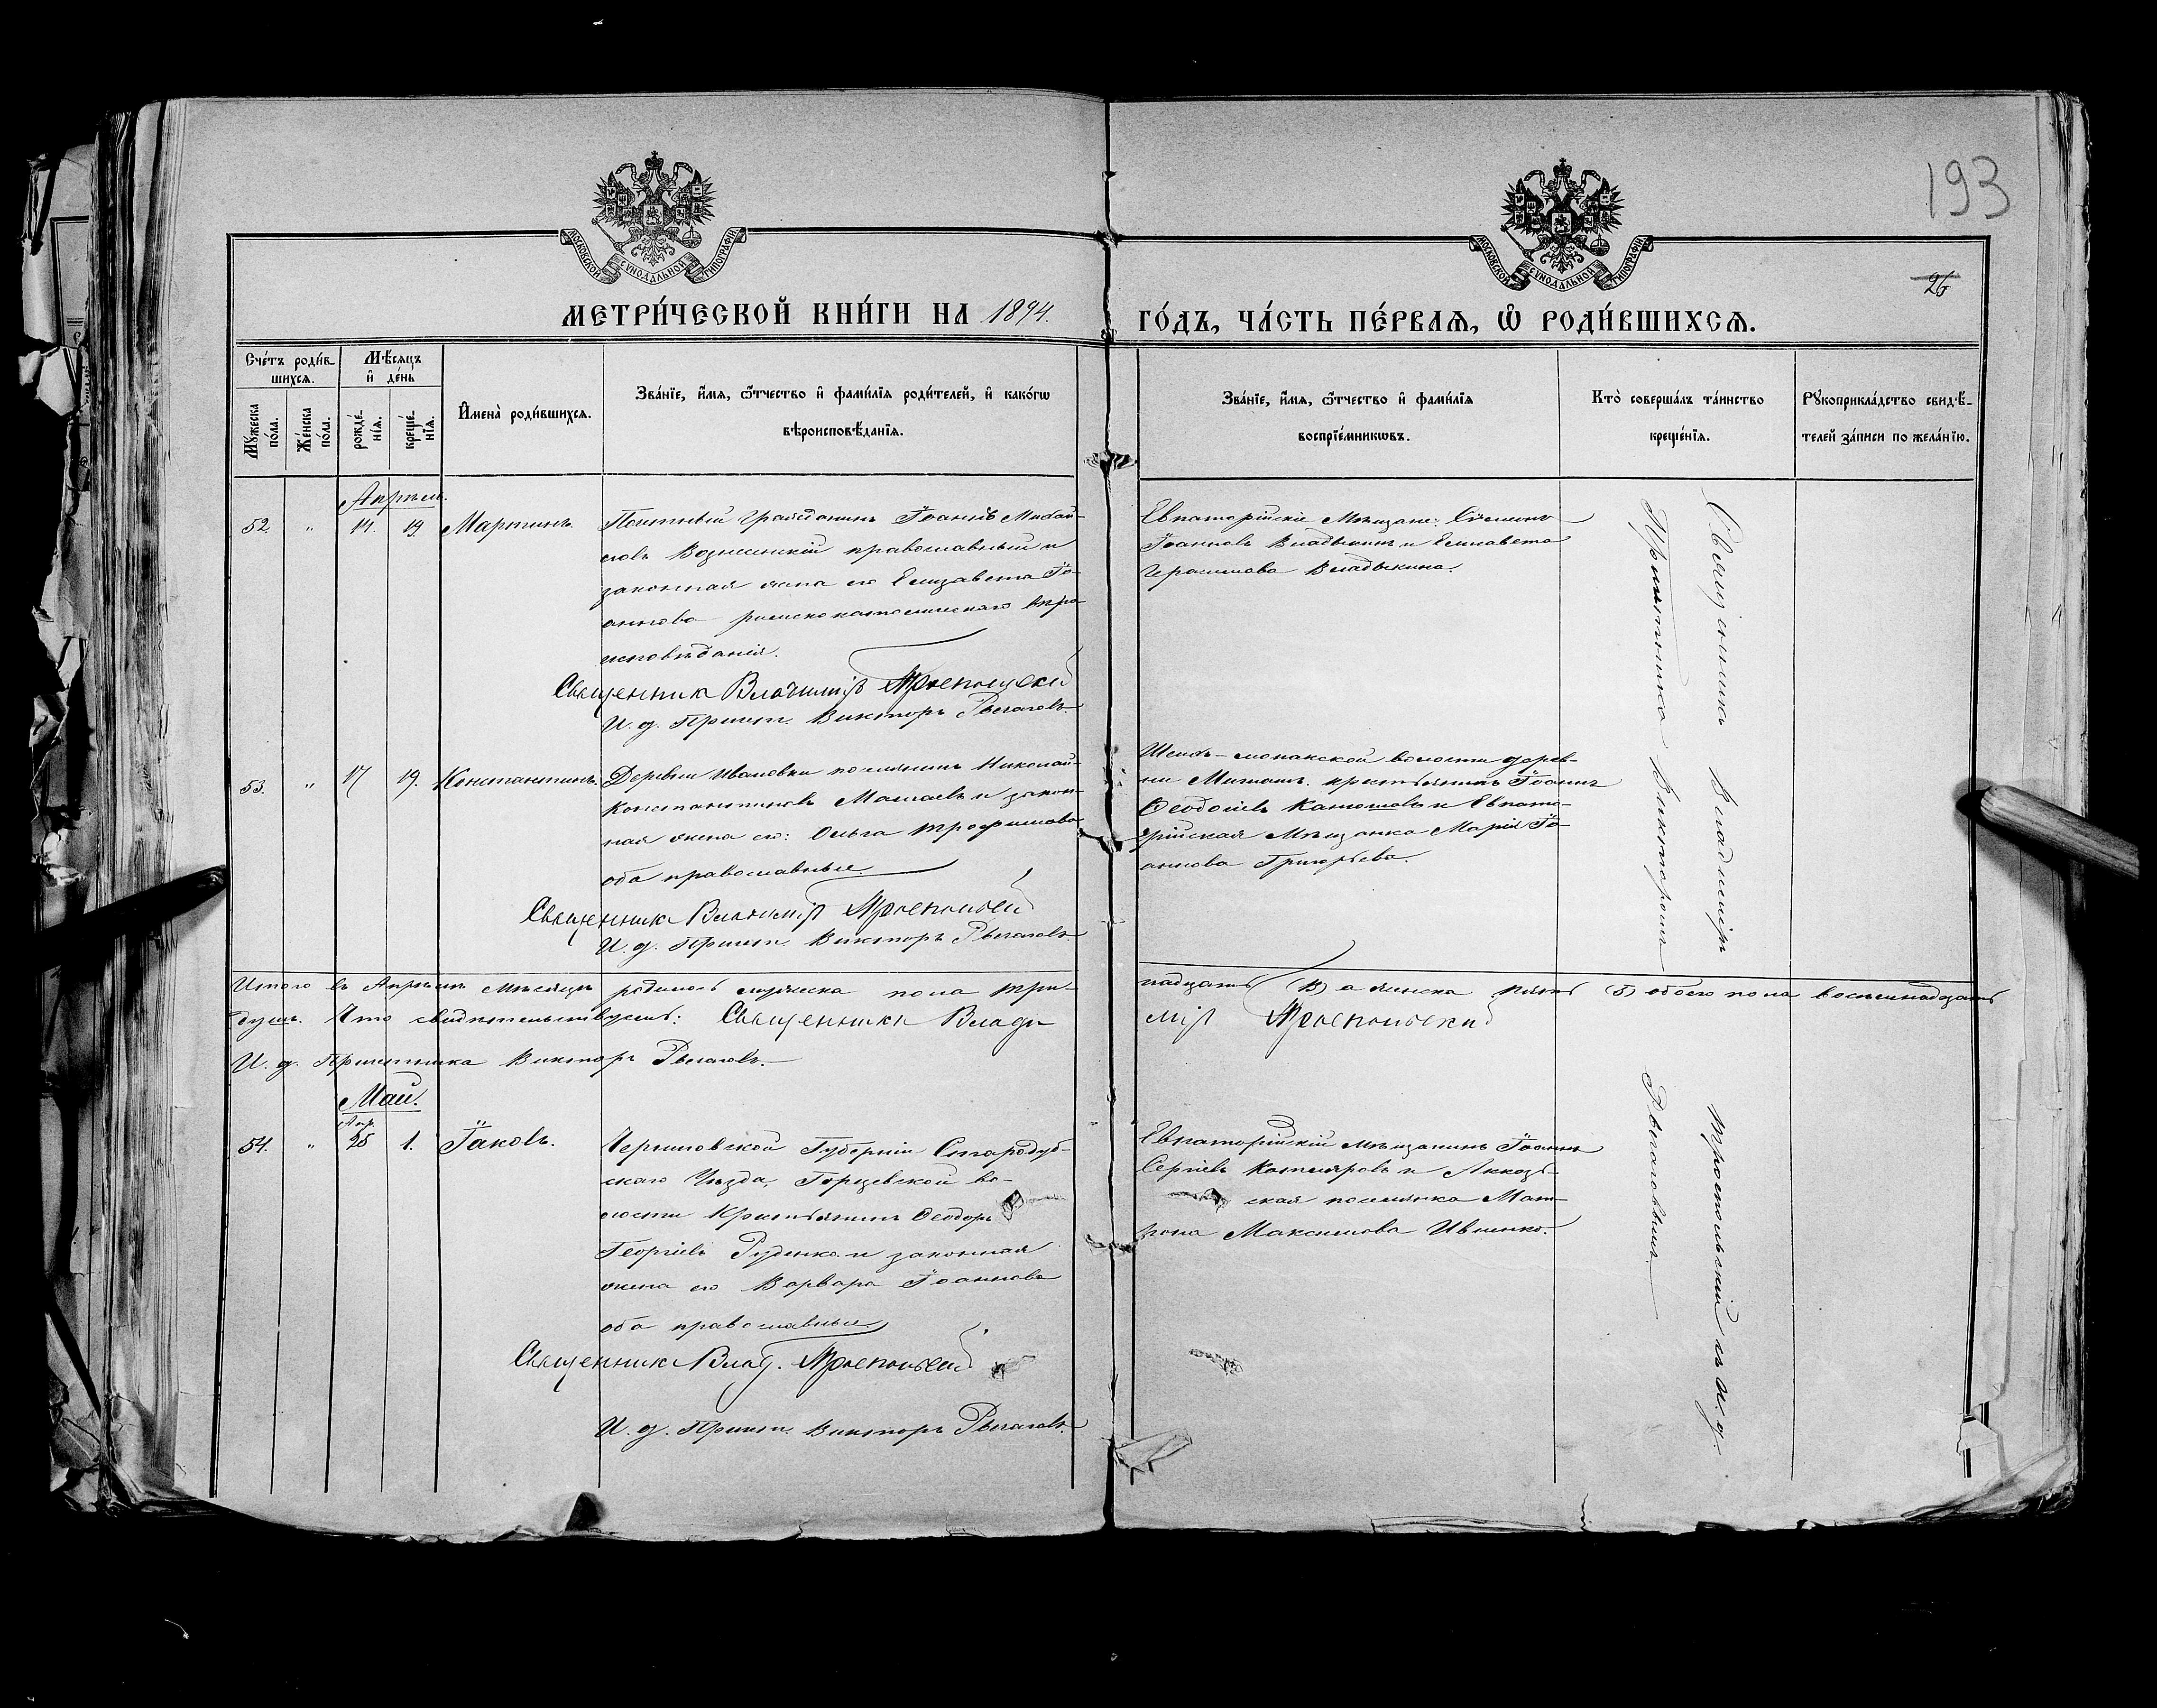 193
МОСКОВСКОЙ СѴНОДАЛЬНОЙ ТИПОГРАФІИ
МОСКОВСКОЙ СѴНОДАЛЬНОЙ ТИПОГРАФІИ
26
МЕТРИ́ЧЕСКОЙ КНИ́ГИ НА 1894.
ГО́ДЪ, ЧА́СТЬ ПЕ́РВАЯ, Ѡ РОДИ́ВШИХСЯ.
Сче́тъ роди́в-
шихся.
Мѣ́сяцъ
и де́нь
Му́жеска
по́ла.
Же́нска
по́ла.
рожде́-
нія.
креще́-
нія.
Имена̀ роди́вшихся.
Зва́нїе, и́мя, ѻ҆́тчество и҆ фами́лїя роди́телей, и҆ како́гѡ
вѣроисповѣ́данїя.
Зва́нїе, и́мя, ѻ҆́тчество и҆ фами́лїя
воспрїе́мникѡвъ.
Кто̀ соверша́лъ та́инство
креще́нїя.
Рꙋкоприкла́дство свидѣ́-
телей за́писи по жела́нїю.
Апрѣль.
52. " 14. 19. Мартинъ.
Почтный Гражданинъ Іоаннъ Михай-
ловъ Вознесенскій православный и
законная жена его Елизавета Іо-
аннова римскокатолическаго вѣро-
исповѣданія.
Священник Владимір Трапольский
И. д. Причет. Викторъ Рыгаловъ.
Евпаторійскіе Мѣщане: Сѵмеонъ
Іоанновъ Владыкинъ и Елисавета
Герасимова Владыкина.
53. " 17 19. Константинъ.
Деревни Ивановки поселянинъ Николай
Константиновъ Машаевъ и закон-
ная жена его: Ольга Трофимова
оба православные.
Священник Владимір
И. д. Причет. Викторъ Рыгаловъ.
волости дерев-
ни крестьянинъ Іоаннъ
Ѳеодосіевъ и Евпато-
рійская Мѣщанка Марія Іо-
аннова Григорьева.
Итого въ Апрѣлѣ Мѣсяцѣ родилось мужеска пола три-
надцать (13) а женска пять (5) обоего пола восемнадцать
душъ. Что свидѣтельствуемъ: Священникъ Влади
мір
И. д. Причетника Викторъ Рыгаловъ.
Май.
Апр.
54. " 25 1. Іаковъ.
Черниговской Губерніи Стародуб-
скаго Уѣзда, во-
лости Крестьянинъ Ѳеодоръ
Георгіевъ Руденко и законная
жена его Варвара Іоаннова
оба православные
Священник Влад.
И. д. Причет. Викторъ Рыгаловъ.
Евпаторійскій мѣщанинъ Іоаннъ
Сергіевъ и
ская поселянка Мат-
рона Максимова
Священникъ Владиміръ и И. д.
Причетника Викторомъ Рыгаловымъ.